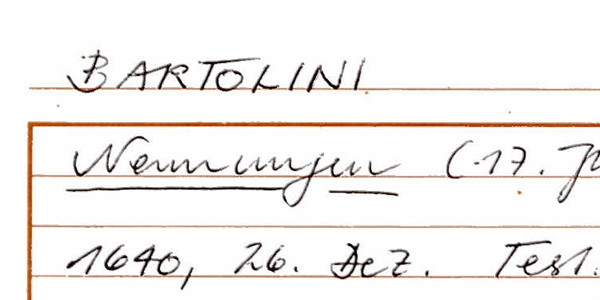 BARTOLINI
Nennungen (17. J
1640, 26. Dez. Test.